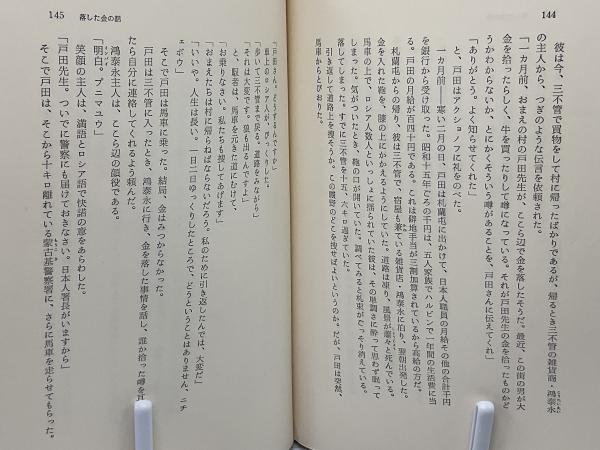 144
彼は今、三不管で買物をして村に帰ったばかりであるが、帰るとき三不管の雑貨商・鴻泰永
の主人から、つぎのような伝言を依頼された。
「一カ月前、おまえの村の戸田先生が、ここら辺で金を落したそうだ。最近、この街の男が大
金を拾ったらしく、牛を買ったりして噂になっている。それが戸田先生の金を拾ったものかど
うかわからないが、とにかくそういう噂があることを、戸田さんに伝えてくれ」
「ありがとう。よく知らせてくれた」
と、戸田はアクショノフに礼をのべた。
一カ月前――寒い二月の日、戸田は札蘭屯に出かけて、日本人職員の月給その他の合計千円
を銀行から受け取った。昭和十五年ごろの千円は、五人家族でハルビンで一年間の生活費に当
る。戸田の月給が百四十円である。これは僻地手当が三割加算されているから高給の方だ。
札蘭屯からの帰り、彼は三不管で、宿屋も兼ねている雑貨店・鴻泰永に泊り、翌朝出発した。
金を入れた鞄を、膝の上にかかえるようにしていた。道路は凍り、風景が蕭々と死んでいる。
馬車の上で、ロシア人数人といっしょに揺られていた彼は、その単調さに酔って思わず眠って
しまった。気がついたとき、鞄の口が開いていた。調べてみると札束がごっそり消えている。
落してしまった。すでに三不管を十五、六キロ過ぎていた。
引き返して道路上を捜そうか。この曠野のどこを捜せばよいというのか。だが、戸田は突然、
馬車からとびおりた。
145 落した金の話
「戸田さん。どうするんですか」
車上のロシア人が、びっくりした。
「歩いて三不管まで戻る。道路をみながら」
「それは大変です。狼も出るんですよ」
と、馭者は、馬車を元きた道にむけて、
「お乗りなさい。私たちも捜してあげます」
「おまえたちは村に帰らねばならないだろう。私のために引き返したんでは、大変だ」
「いいや。人生は長い。一日二日ゆっくりしたところで、どうということはありません、ニチ
ェボウ」
そこで戸田は馬車に乗った。結局、金はみつからなかった。
戸田は三不管に入ったとき、鴻泰永に行き、金を落した事情を話し、誰か拾った噂を耳
たら自分に連絡してくれるよう頼んだ。
鴻泰永主人は、ここら辺の顔役である。
「明白。プニマユウ」
笑顔の主人は、満語とロシア語で快諾の意をあらわした。
「戸田先生。ついでに警察にも届けておきなさい。日本人署長がいますから」
そこで戸田は、そこから十キロ離れている蒙古基警察署に、さらに馬車を走らせてもらった。